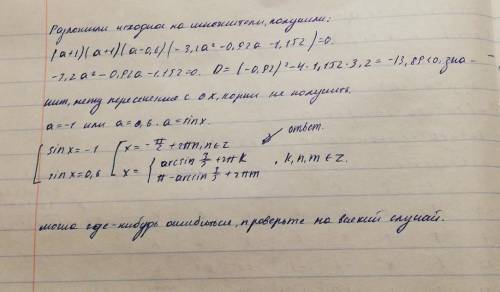 Разложили исходное на множители, получили:
(a+1)(a+1)(a-0,6)(-3,2a²-0,92a-1,152)=0.
-3,2a²-0,92a-1,152=0. D=(-0,92)²-4·1,152·3,2=-13,89<0, зна-
чит, нету пересечения с ox, корни не получить.
a=-1 или a=0,6. a=sinx.
ответ.
[sinx=-1 [x=-π/2+2πn, n∈Z
sinx=0,6 x={arcsin 3/5+2πk
π-arcsin 3/5+2πm , k,n,m∈Z.
могла где-нибудь ошибиться, проверьте на всякий случай.